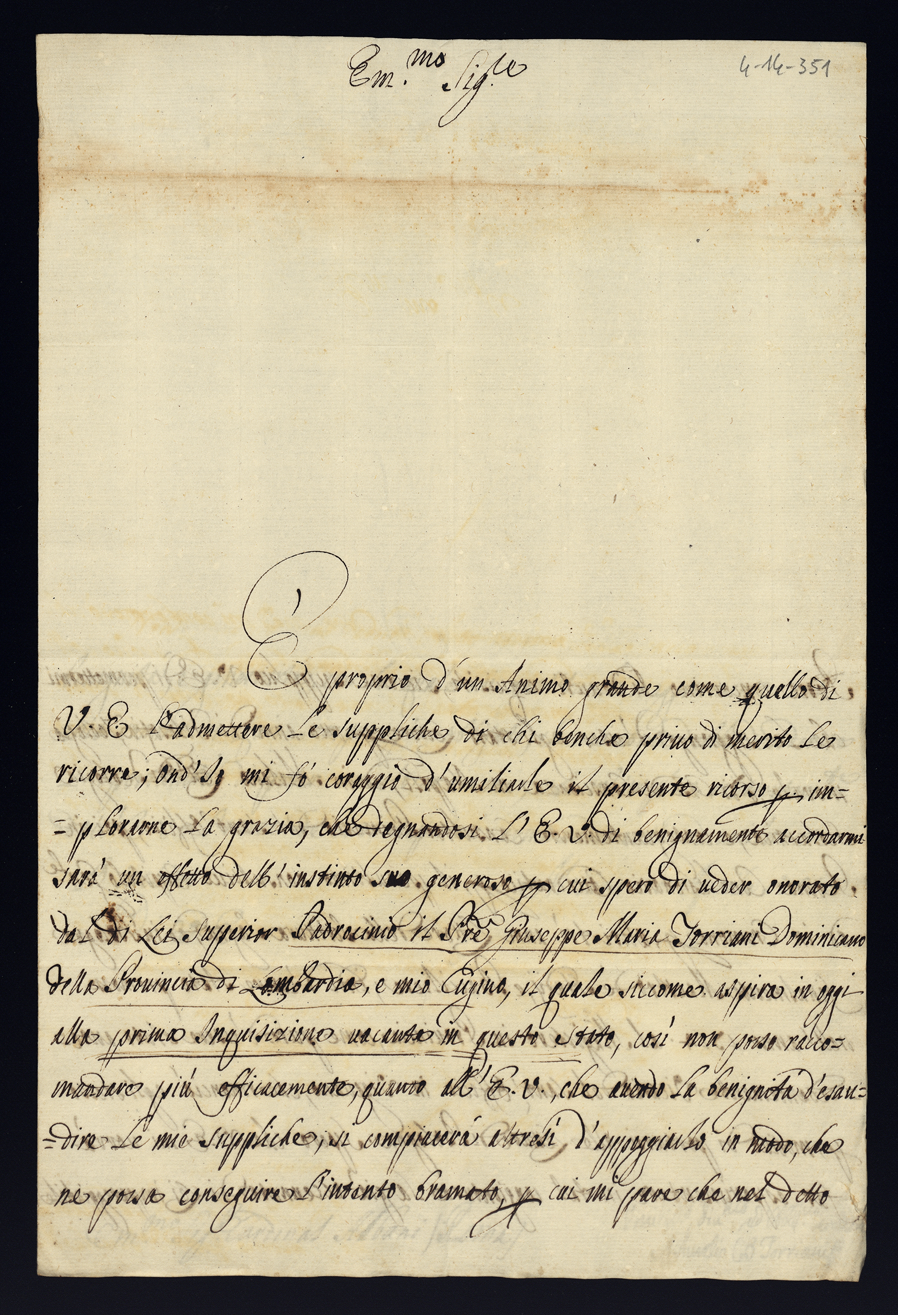 4-14-351
Em.mo Sig.re
È proprio d'un Animo grande come quello di
V. E l'admettere le suppliche di chi benche priuo di merito le
ricorre; Ond'Io mi fò coraggio d'umiliarle il presente ricorso p. im=
=ploraone la grazia, che degnandosi L'E. V. di benignamente accordarmi
sarà un effetto dell'instinto suo generoso p cui spero di veder onorato
dal di Lei Superior Padrocinio il Pre Giuseppe Maria Torriani Dominicano
della Prouincia di Lombardia, e mio Cugino, il quale siccome aspira in oggi
alla prima Inquisizione uacante in questo Stato, così non posso racco=
mandare più efficacemente, quanto all'E. V., che auendo la benignità d'esau=
=dire le mie suppliche, si compiacerà altresì d'appoggiarlo in modo, che
ne possa conseguire l'intento bramato, p cui mi pare che nel detto